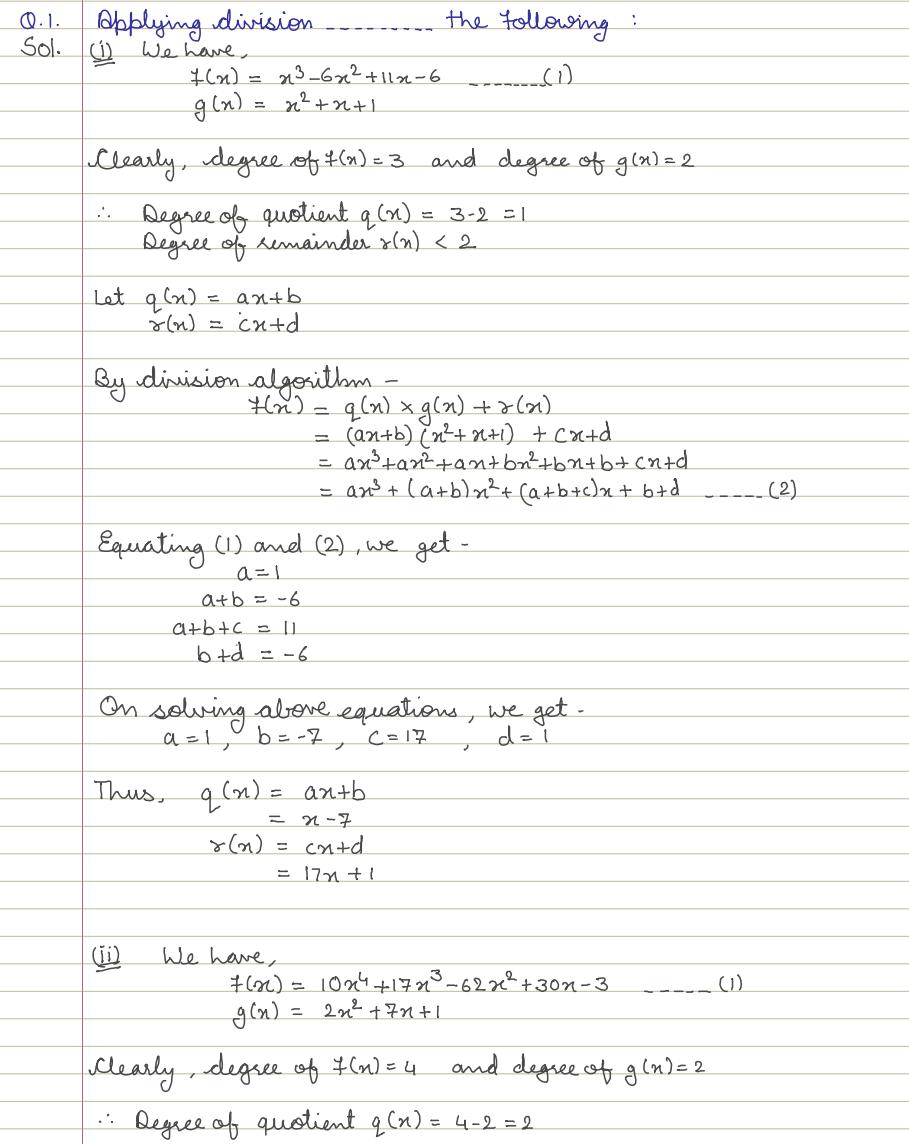 Q.1. Applying division --------- the following :
Sol. (i) We have,
f(x) = x³-6x²+11x-6 --------(1)
g(x) = x²+x+1
Clearly, degree of f(x) = 3 and degree of g(x) = 2
∴ Degree of quotient q(x) = 3-2 = 1
Degree of remainder r(x) < 2
Let q(x) = ax+b
r(x) = cx+d
By division algorithm -
f(x) = q(x) × g(x) + r(x)
= (ax+b) (x²+x+1) + cx+d
= ax³+ax²+ax+bx²+bx+b+cx+d
= ax³+(a+b)x²+(a+b+c)x + b+d -----(2)
Equating (1) and (2), we get -
a=1
a+b = -6
a+b+c = 11
b+d = -6
On solving above equations, we get -
a=1, b=-7, c=17, d=1
Thus, q(x) = ax+b
= x-7
r(x) = cx+d
= 17x+1
(ii) We have,
f(x) = 10x⁴+17x³-62x²+30x-3 -----(1)
g(x) = 2x²+7x+1
Clearly, degree of f(x) = 4 and degree of g(x) = 2
∴ Degree of quotient q(x) = 4-2 = 2